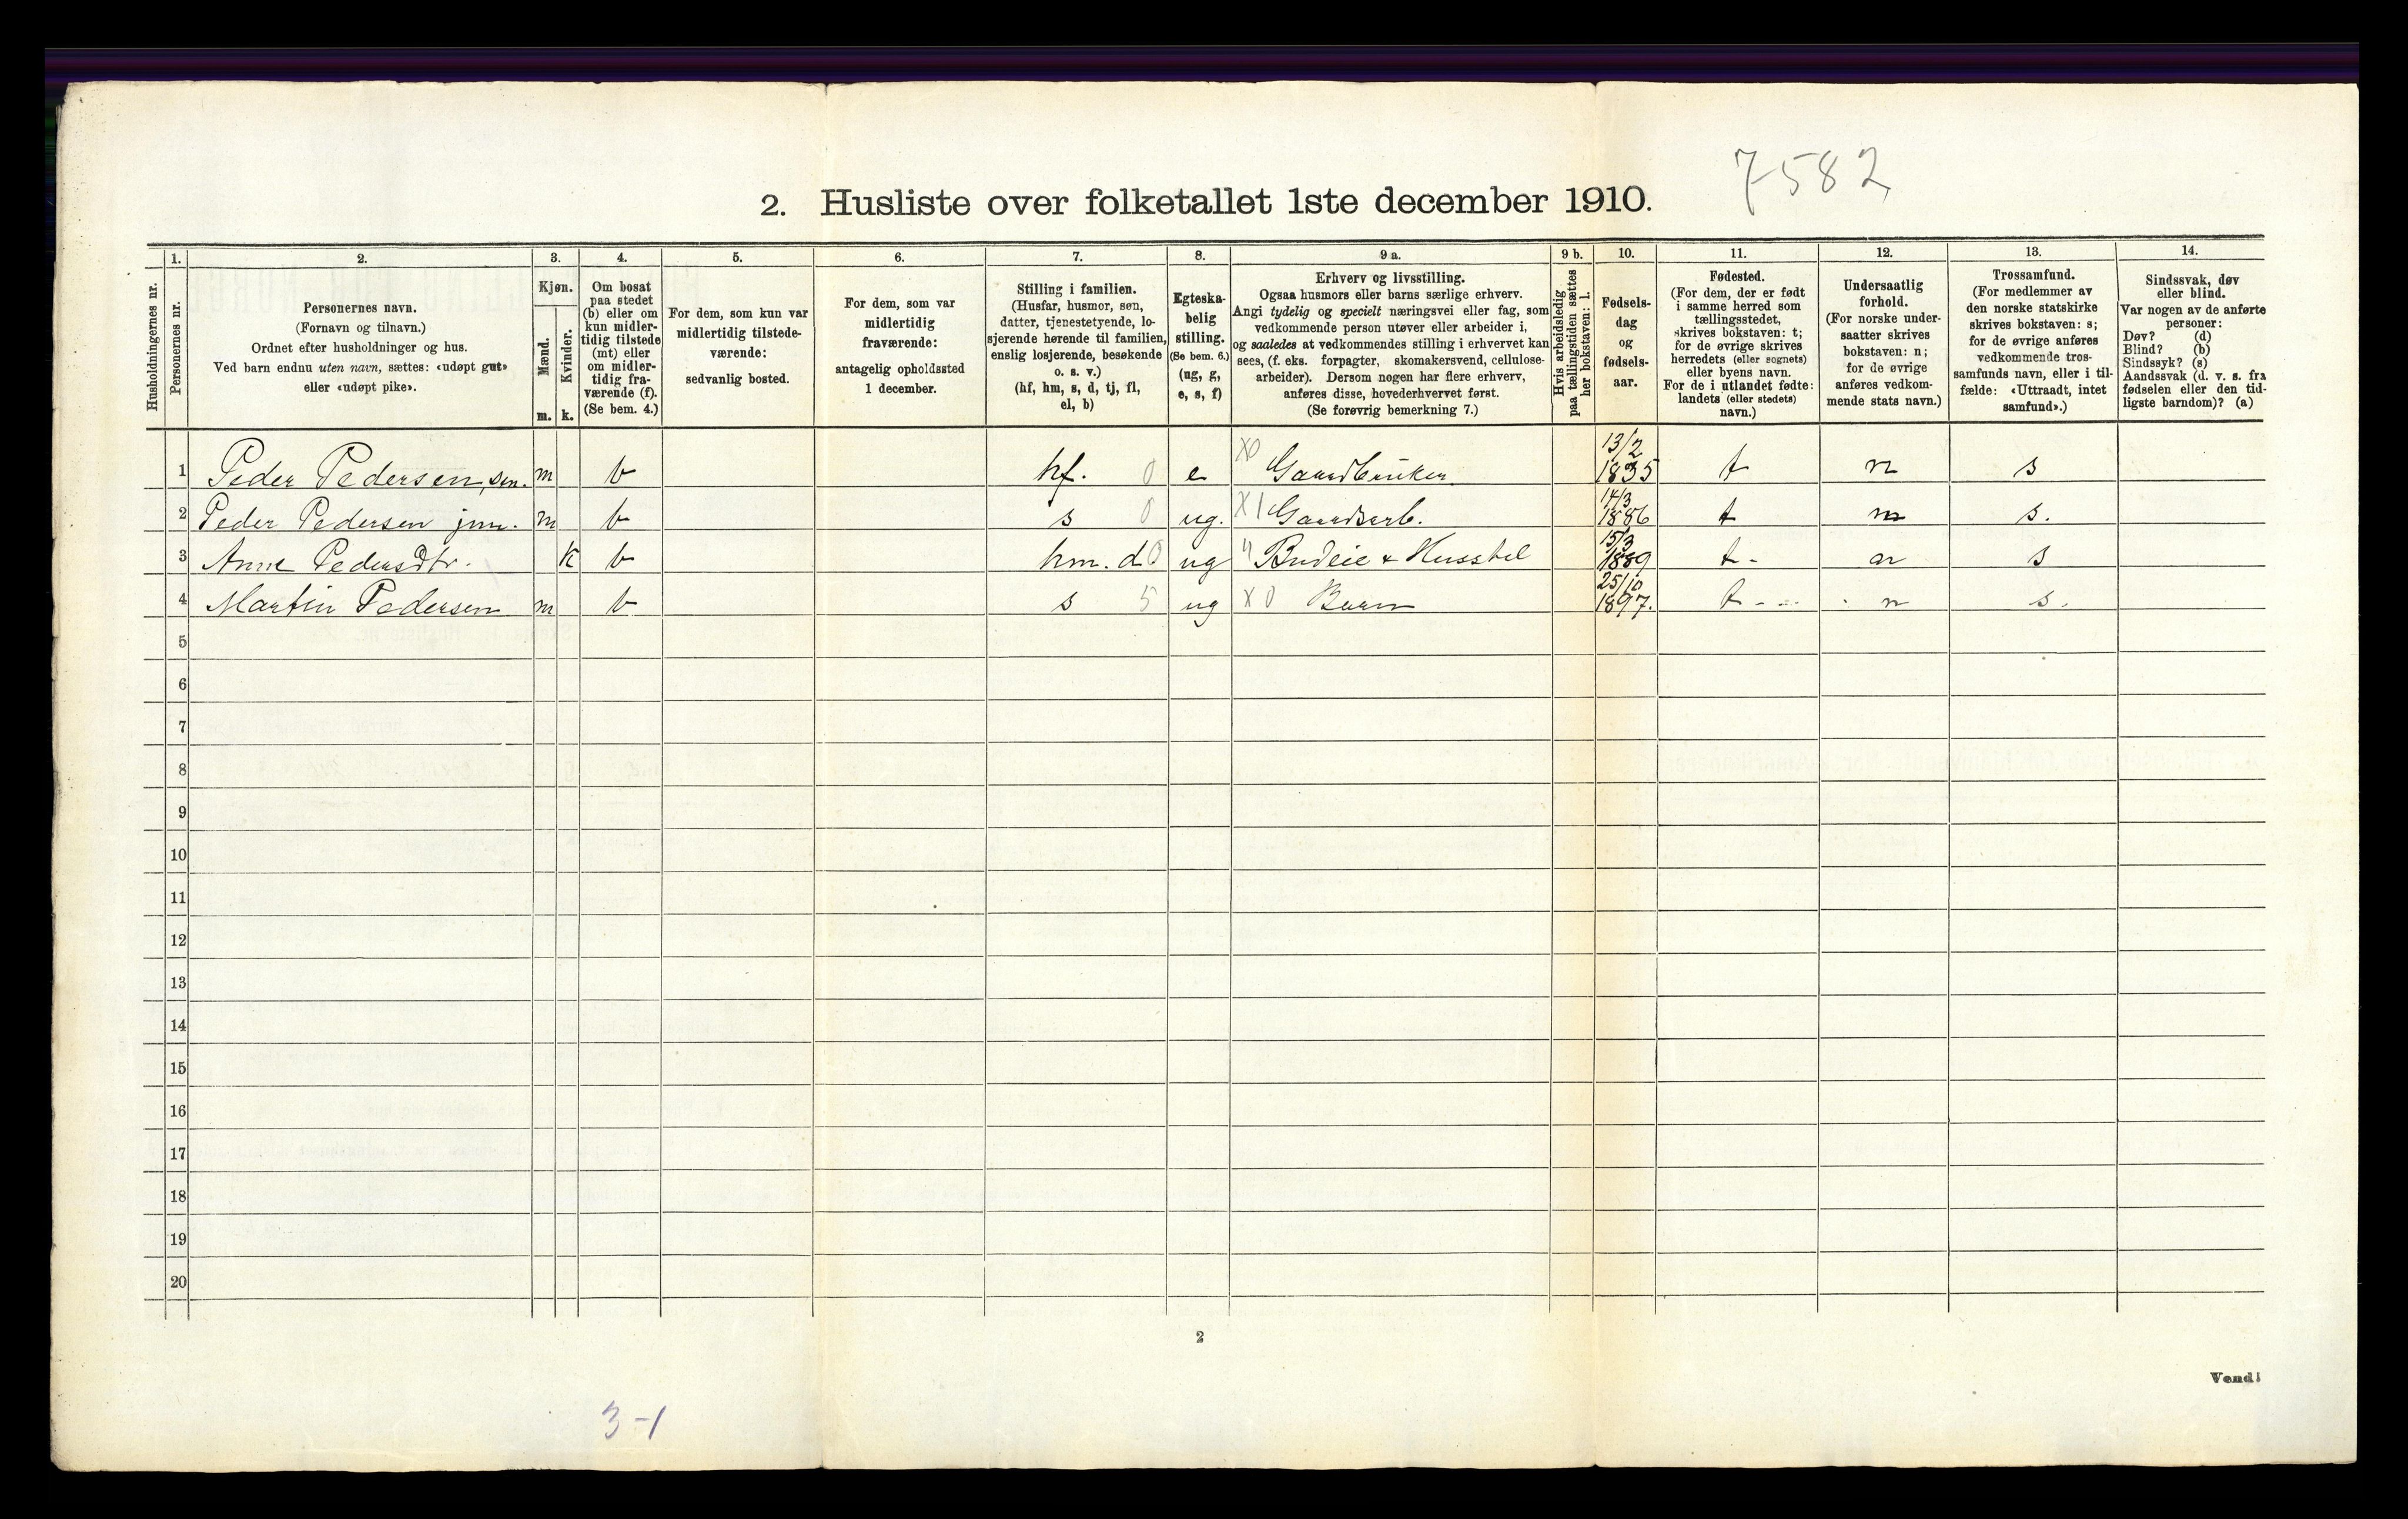 7582
2. Husliste over folketallet 1ste december 1910.
Husholdningernes nr.
1.
Personernes nr.
2.
Personernes navn.
(Fornavn og tilnavn.)
Ordnet efter husholdninger og hus.
Ved barn endnu uten navn, sættes: «udøpt gut»
eller «udøpt pike».
3.
Kjøn.
Mænd.
m.
Kvinder.
k.
4.
Om bosat
paa stedet
(b) eller om
kun midler-
tidig tilstede
(mt) eller
om midler-
tidig fra-
værende (f).
(Se bem. 4.)
5.
For dem, som kun var
midlertidig tilstede-
værende:
sedvanlig bosted.
6.
For dem, som var
midlertidig
fraværende:
antagelig opholdssted
1 december.
7.
Stilling i familien.
(Husfar, husmor, søn,
datter, tjenestetyende, lo-
sjerende hørende til familien,
enslig losjerende, besøkende
o. s. v.)
(hf, hm, s, d, tj, fl,
el, b)
8.
Egteska-
belig
stilling.
(Se bem. 6.)
(ug, g,
e, s, f)
9 a.
Erhverv og livsstilling.
Ogsaa husmors eller barns særlige erhverv.
Angi tydelig og specielt næringsvei eller fag, som
vedkommende person utøver eller arbeider i,
og saaledes at vedkommendes stilling i erhvervet kan
sees, (f. eks. forpagter, skomakersvend, cellulose-
arbeider). Dersom nogen har flere erhverv,
anføres disse, hovederhvervet først.
(Se forøvrig bemerkning 7.)
9 b.
Hvis arbeidsledig
paa tællingstiden sættes
her bokstaven: l.
10.
Fødsels-
dag
og
fødsels-
aar.
11.
Fødested.
(For dem, der er født
i samme herred som
tællingsstedet,
skrives bokstaven: t;
for de øvrige skrives
herredets (eller sognets)
eller byens navn.
For de i utlandet fødte:
landets (eller stedets)
navn.)
12.
Undersaatlig
forhold.
(For norske under-
saatter skrives
bokstaven: n;
for de øvrige
anføres vedkom-
mende stats navn.)
13.
Trossamfund.
(For medlemmer av
den norske statskirke
skrives bokstaven: s;
for de øvrige anføres
vedkommende tros-
samfunds navn, eller i til-
fælde: «Uttraadt, intet
samfund».)
14.
Sindssvak, døv
eller blind.
Var nogen av de anførte
personer:
Døv? (d)
Blind? (b)
Sindssyk? (s)
Aandssvak (d. v. s. fra
fødselen eller den tid-
ligste barndom)? (a)
1 Peder Pedersen, sen. m b hf. 0 e X0 Gaardbruker 13/2 1835 t n s
2 Peder Pedersen jun. m b s 0 ug. X1 Gaardsarb. 14/3 1886 t n s.
3 Anne Pedersdtr. K b hm. d 0 ug " Budeie & Husstel 15/3 1889 t - n s
4 Martin Pedersen m b s 5 ug X0 Barn 25/10 1897. t - n s.
5
6
7
8
9
10
11
12
13
14
15
16
17
18
19
20
2
Vend!
3-1